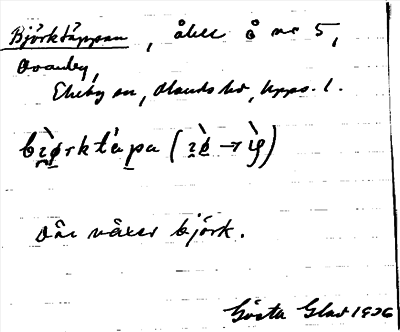 Björktäppan, åker å nr 5,
Ovanby,
Ekeby sn, Olands hd, Upps. l.
bi̯ø̀rktäpa (i̯ø̀ → ỳ)
Där växer björk.
Gösta Glad 1926